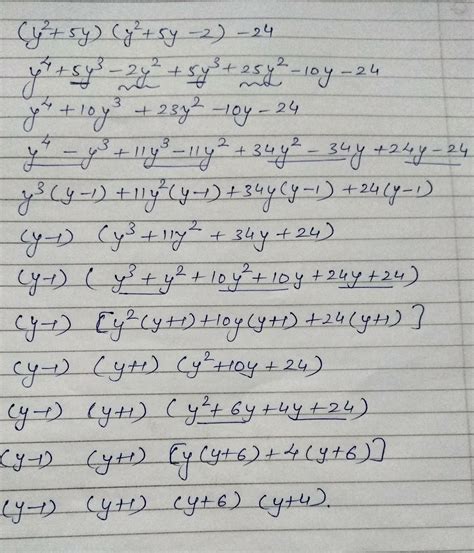 (y²+5y) (y²+5y-2) -24
y⁴+5y³-2y²+5y³+25y²-10y-24
y⁴+10y³ +23y²-10y-24
y⁴-y³+11y³-11y²+34y²-34y+24y-24
y³(y-1)+11y²(y-1)+34y(y-1)+24(y-1)
(y-1) (y³+11y²+34y+24)
(y-1) (y³+y²+10y²+10y+24y+24)
(y-1) [y²(y+1)+10y(y+1)+24(y+1)]
(y-1) (y+1) (y²+10y+24)
(y-1) (y+1) (y²+6y+4y+24)
(y-1) (y+1) [y(y+6)+4(y+6)]
(y-1) (y+1) (y+6) (y+4).